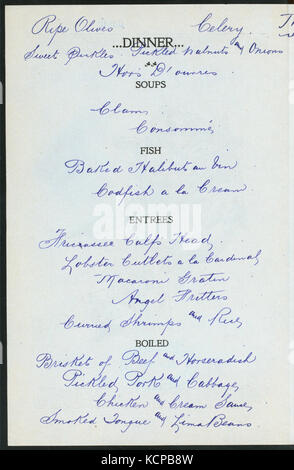 Ripe Olives Celery
...DINNER...
Sweet Pickles Pickled Walnuts and Onions
Hors D'ouvres
SOUPS
Clam
Consommé
FISH
Baked Halibut au Vin
Codfish a la Cream
ENTREES
Fricassee Calfs Head
Lobster Cutlets a la Cardinal
Macaroni Gratin
Angel Fritters
Curried Shrimps and Rice
BOILED
Brisket of Beef and Horseradish
Pickled Pork and Cabbage
Chicken and Cream Sauce
Smoked Tongue and Lima Beans
alamy
Image ID: KCPB8W
www.alamy.com